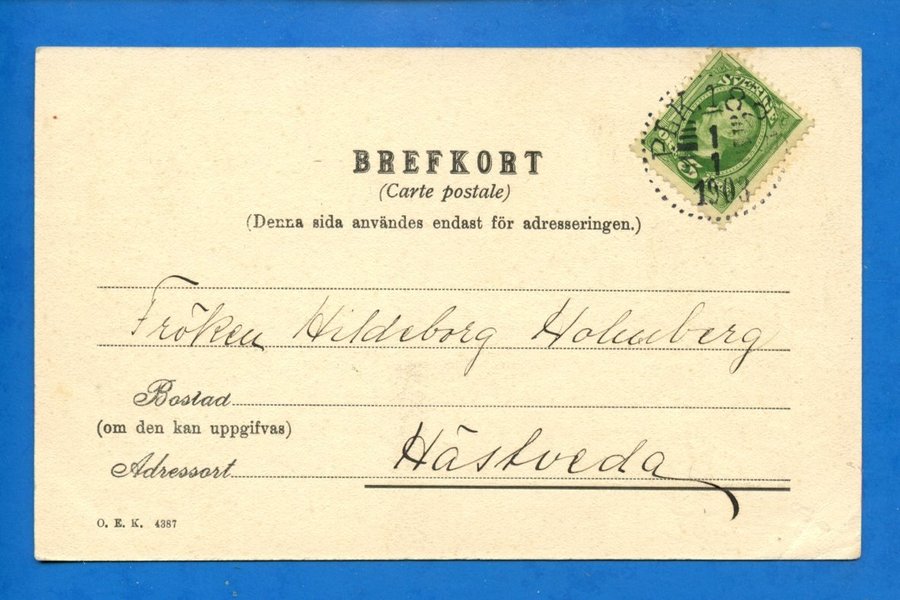 BREFKORT
(Carte postale)
(Denna sida användes endast för adresseringen.)
SVERIGE
5
1
1
1903
Fröken Hildeborg Holmberg
Bostad
(om den kan uppgifvas)
Adressort Hästveda
O. E. K. 4387